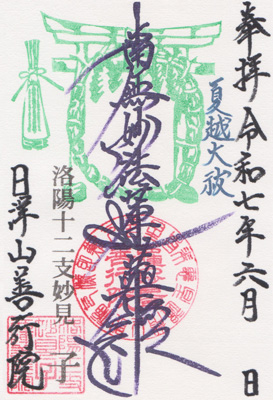 奉拝 令和七年六月 日
夏越大祓
南無妙法蓮華経
洛陽十二支妙見 子
日洋山善行院